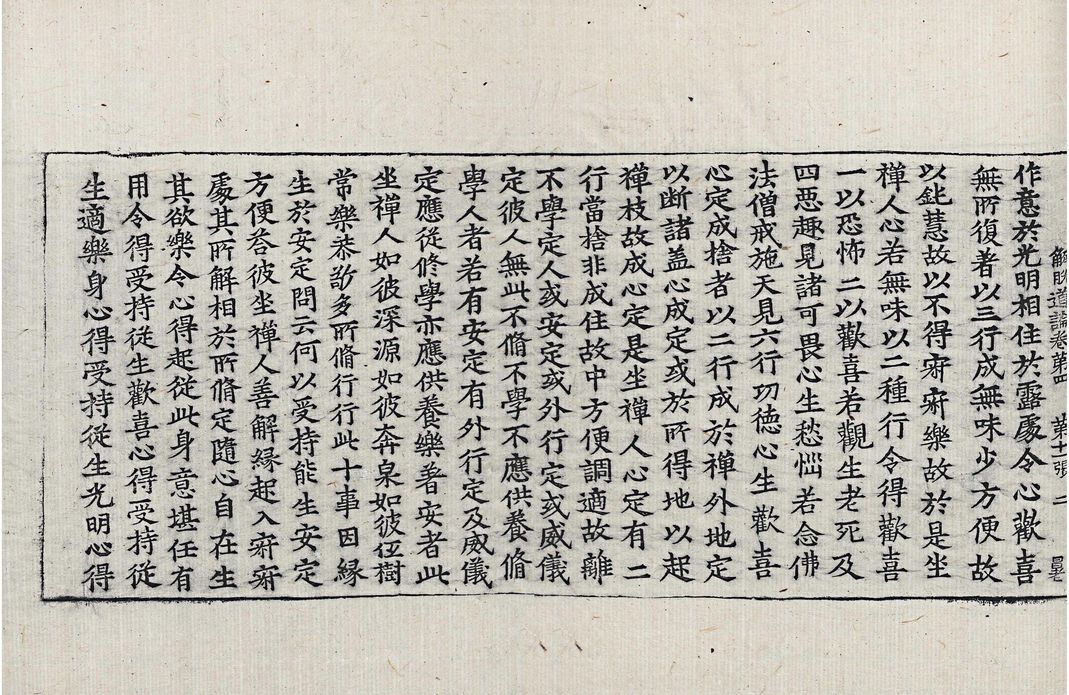 解脫道論卷第四　第十一張　二
作意於光明相住於露處令心歡喜
無所復著以三行成無味少方便故
以鈍慧故以不得寂寂樂故於是坐
禪人心若無味以二種行令得歡喜
一以恐怖二以歡喜若觀生老死及
四惡趣見諸可畏心生愁惱若念佛
法僧戒施天見六行功德心生歡喜
心定成捨者以二行成於禪外地定
以断諸盖心成定或於所得地以起
禪枝故成心定是坐禪人心定有二
行當捨非成住故中方便調適故離
不學定人或安定或外行定或威儀
定彼人無此不脩不學不應供養脩
學人者若有安定有外行定及威儀
定應從修學亦應供養樂著安者此
坐禪人如彼深源如彼奔泉如彼伍樹
常樂恭敬多所脩行行此十事因緣
生於安定問云何以受持能生安定
方便荅彼坐禪人善解緣起入寂寂
處其所解相於所脩定隨心自在生
其欲樂令心得起從此身意堪任有
用令得受持從生歡喜心得受持從
生適樂身心得受持從生光明心得